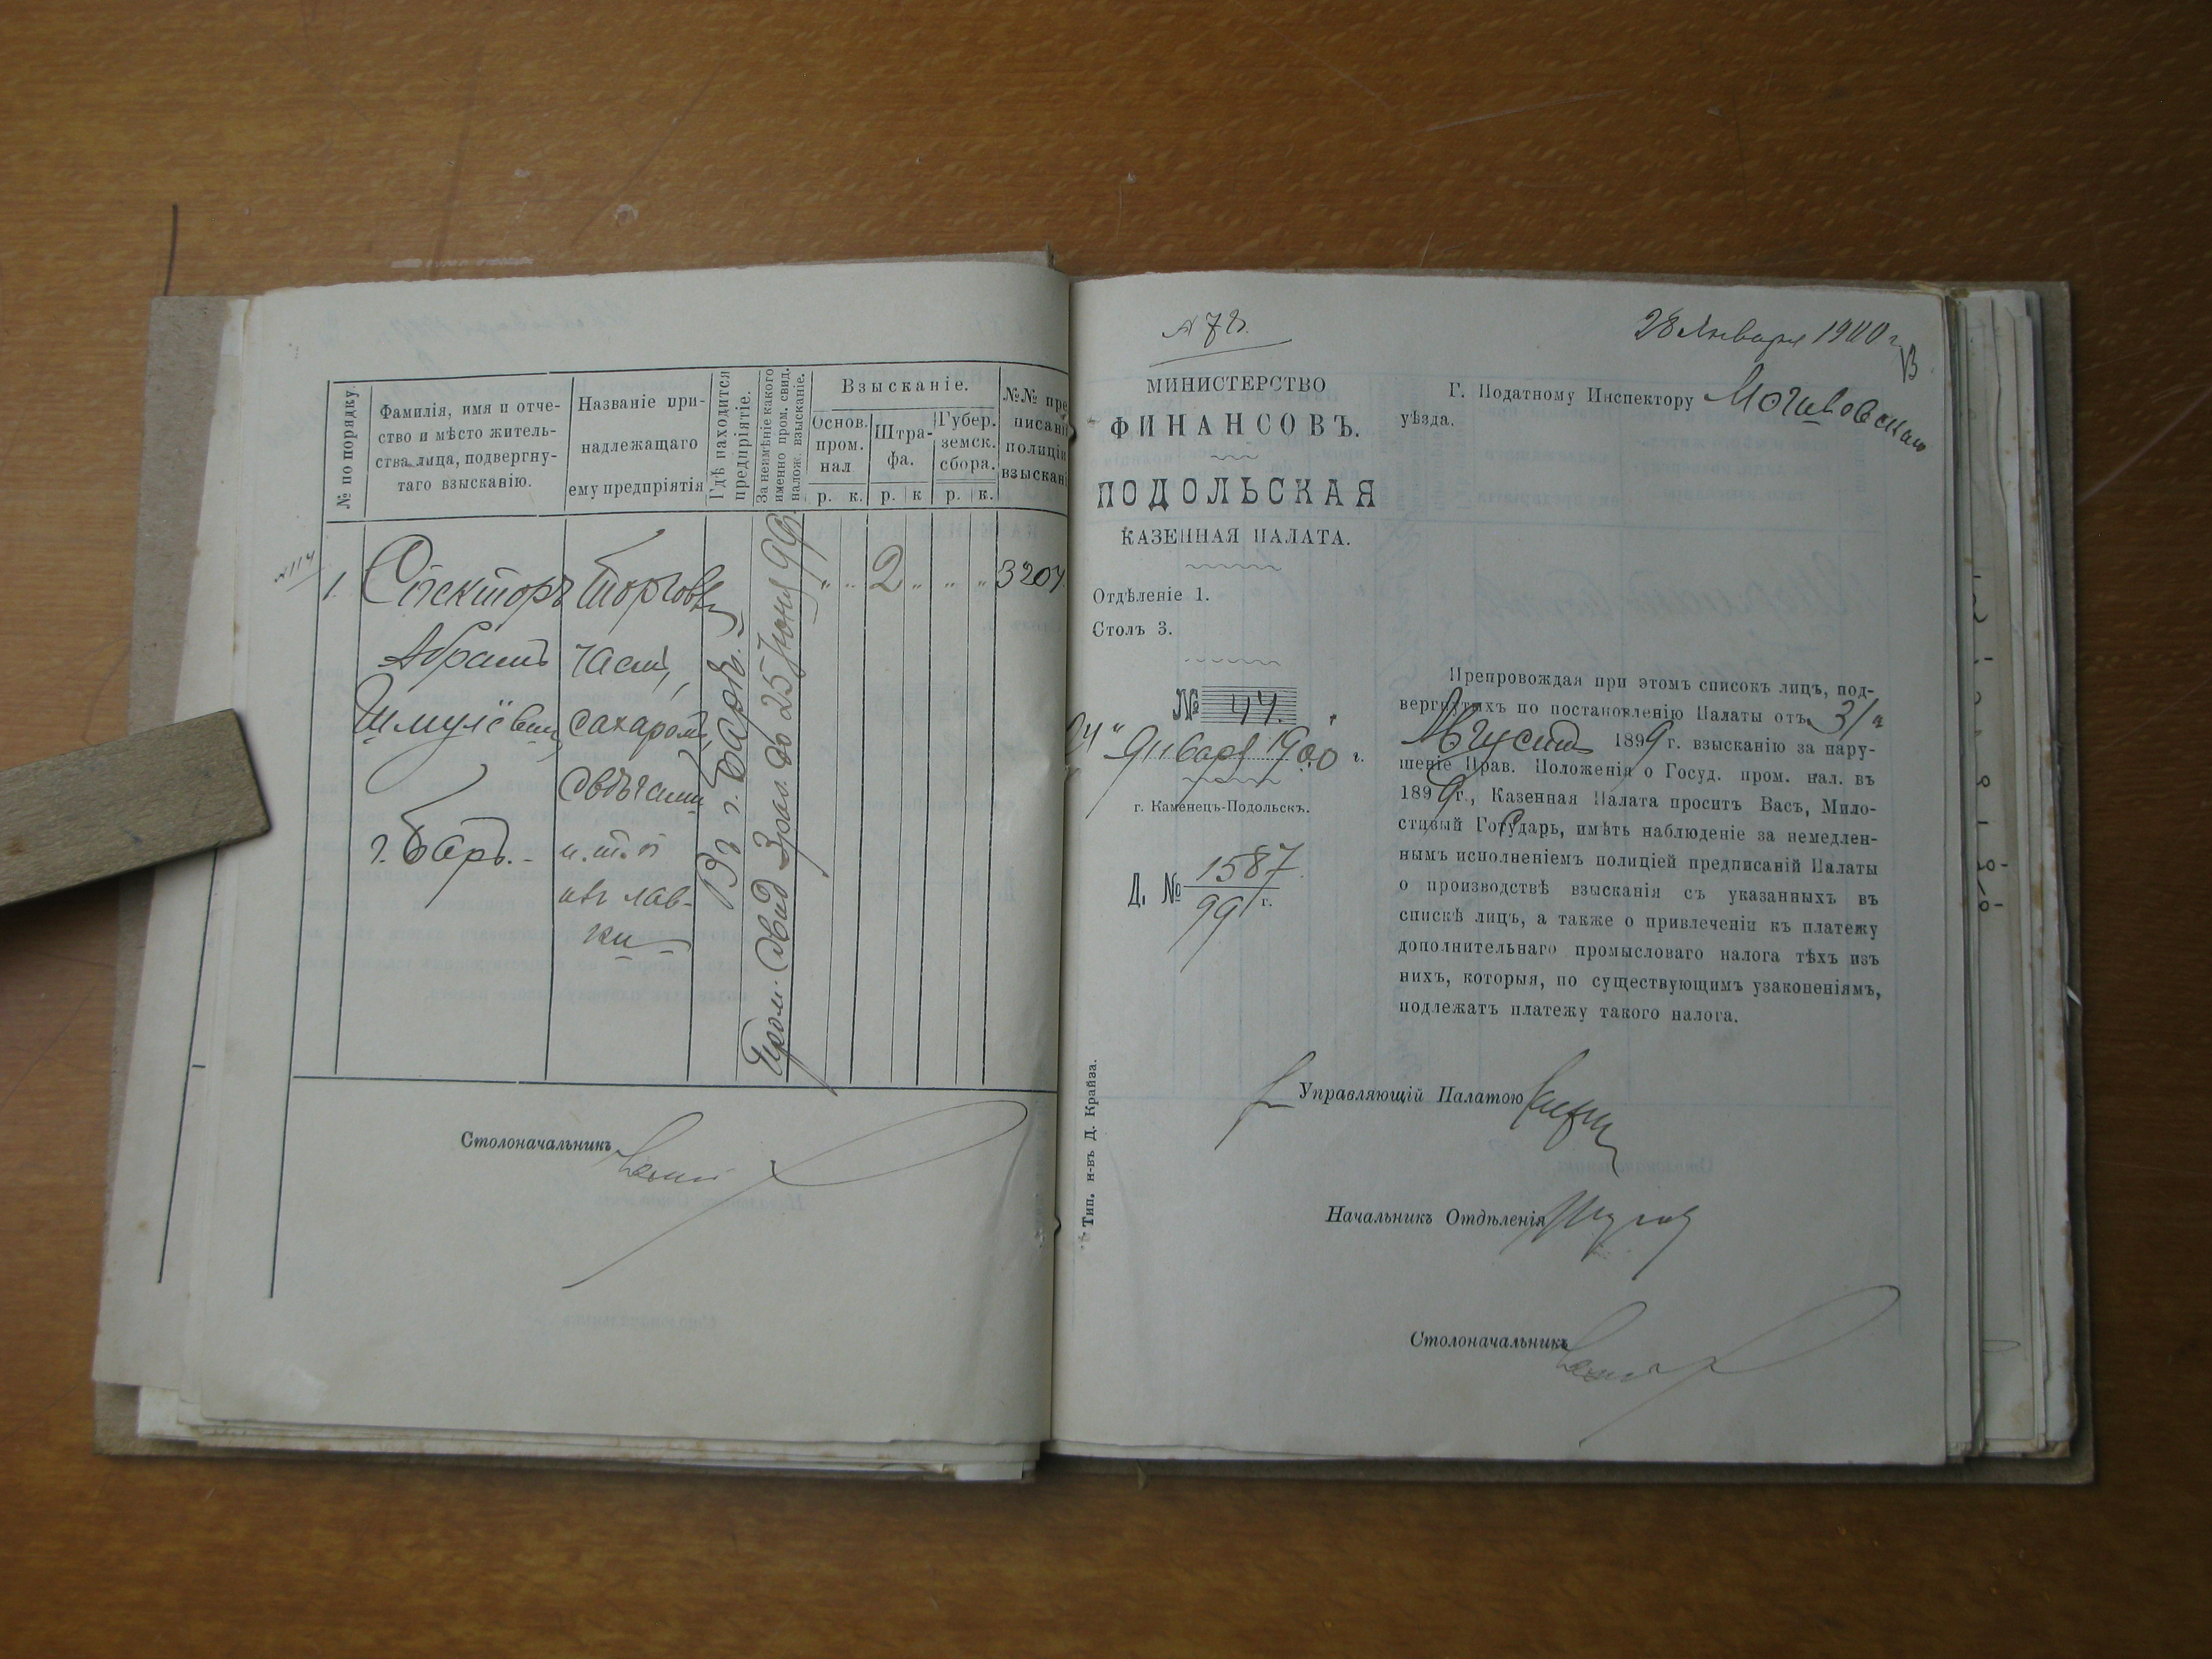 № по порядку.
Фамилія, имя и отче-
ство и мѣсто житель-
ства лица, подвергну-
таго взысканію.
Названіе при-
надлежащаго
ему предпріятія
Гдѣ находится
предпріятіе.
За неимѣніе какого
именно пром. свид.
налож. взысканіе.
Взысканіе.
Основ.
пром.
нал
Штра-
фа.
Губер.
земск.
сбора.
р. к. р. к р. к.
№№ пре
писані
полиціи
взыскані
1. Спекторъ
Абрамъ
Шмулёвъ
г. Баръ.-
Торговля
чаемъ,
сахаромъ,
свѣчами
и. т. п
изъ лав-
ки
въ г. Барѣ.
Пром. Свид 3 раз. до 25 Іюня 99 г.
" " 2 " " " 3204
Столоначальникъ
№ 72.
28 Января 1900 г.
МИНИСТЕРСТВО
ФИНАНСОВЪ.
ПОДОЛЬСКАЯ
КАЗЕННАЯ ПАЛАТА.
Отдѣленіе 1.
Столъ 3.
№ 44.
24 " Января 1900 г.
г. Каменецъ-Подольскъ.
Д. № 1587
99 г.
Тип. н-въ Д. Крайза.
Г. Податному Инспектору Могилевскаго
уѣзда.
Препровождая при этомъ списокъ лицъ, под-
вергнутыхъ по постановленію Палаты отъ 31
Августа 1899 г. взысканію за нару-
шеніе Прав. Положенія о Госуд. пром. нал. въ
1899 г., Казенная Палата проситъ Васъ, Мило-
стивый Государь, имѣть наблюденіе за немедлен-
нымъ исполненіемъ полиціей предписаній Палаты
о производствѣ взысканія съ указанныхъ въ
спискѣ лицъ, а также о привлеченіи къ платежу
дополнительнаго промысловаго налога тѣхъ изъ
нихъ, которыя, по существующимъ узаконеніямъ,
подлежатъ платежу такого налога.
Управляющій Палатою
Начальникъ Отдѣленія
Столоначальникъ